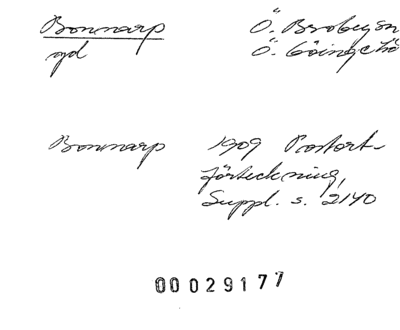 Bonnarp Ö. Broby sn
gd Ö. Göinge hd
Bonnarp 1909 Postort-
förteckning,
Suppl. s. 2140
00029177